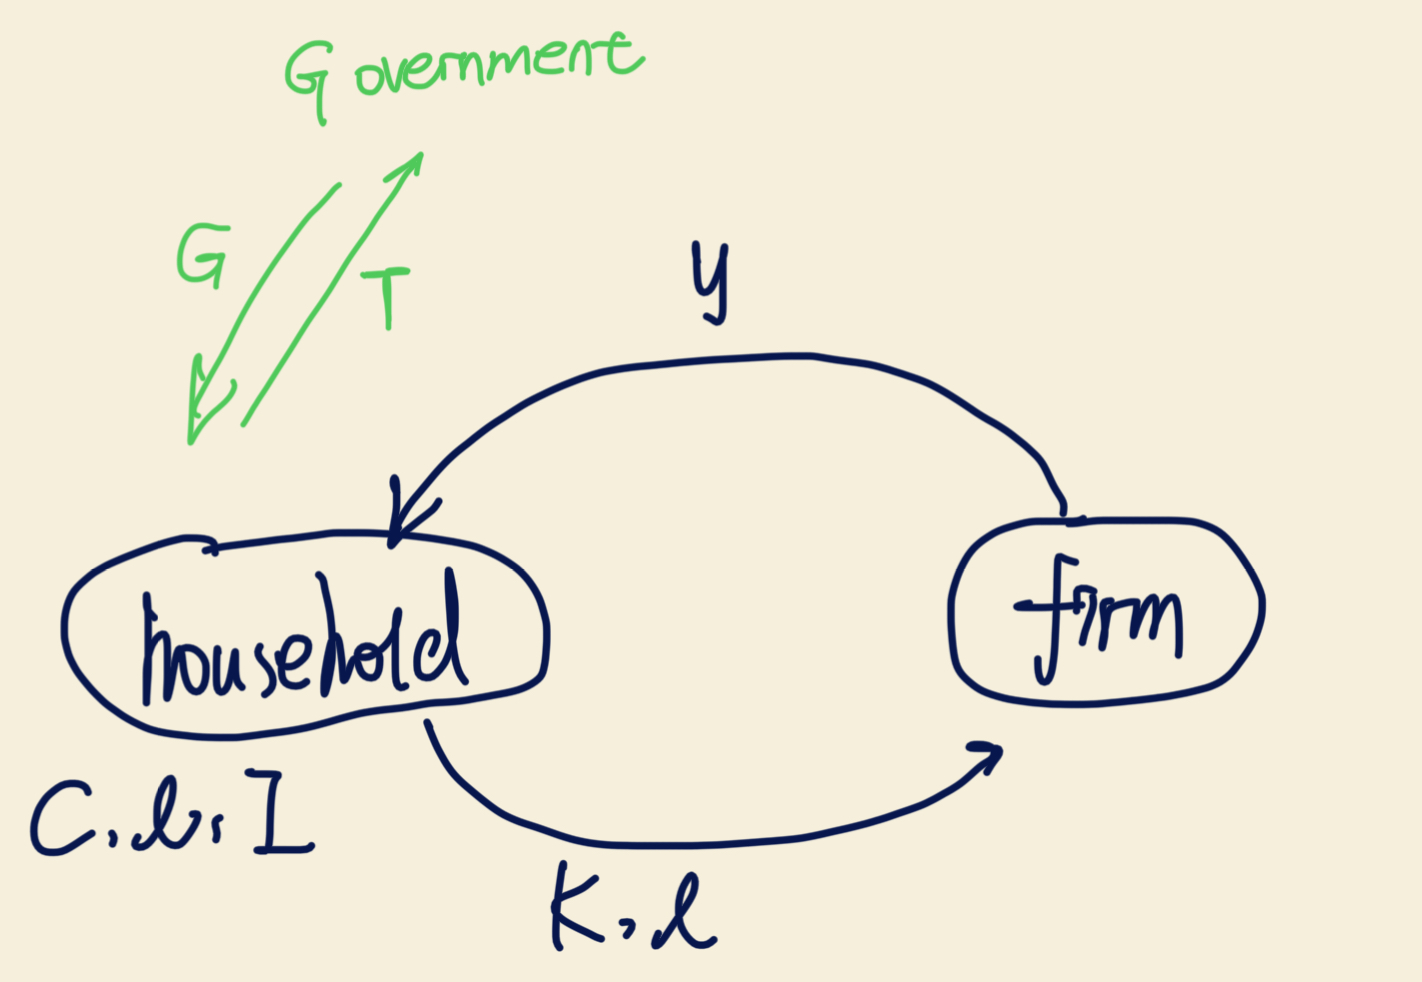 Government
G
T
y
household
firm
C, l, I
K, l